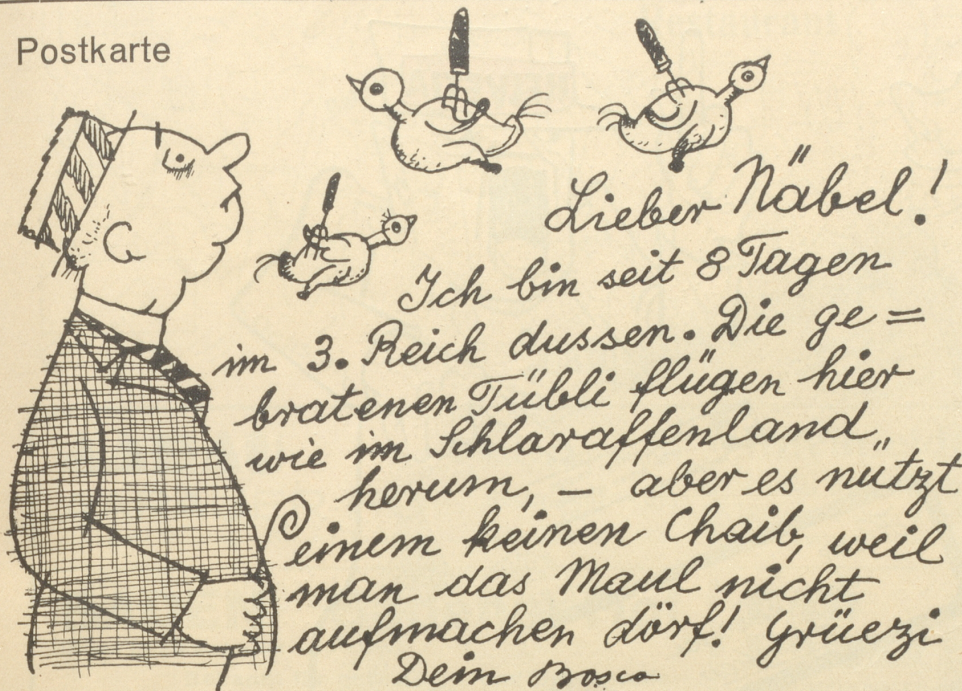 Postkarte
Lieber Näbel!
Ich bin seit 8 Tagen
im 3. Reich dussen. Die ge=
bratenen Tübli flügen hier
wie im Schlaraffenland
herum, – aber es nützt
einem keinen Chaib, weil
man das Maul nicht
aufmachen dörf! Grüezi
Dein Bosco